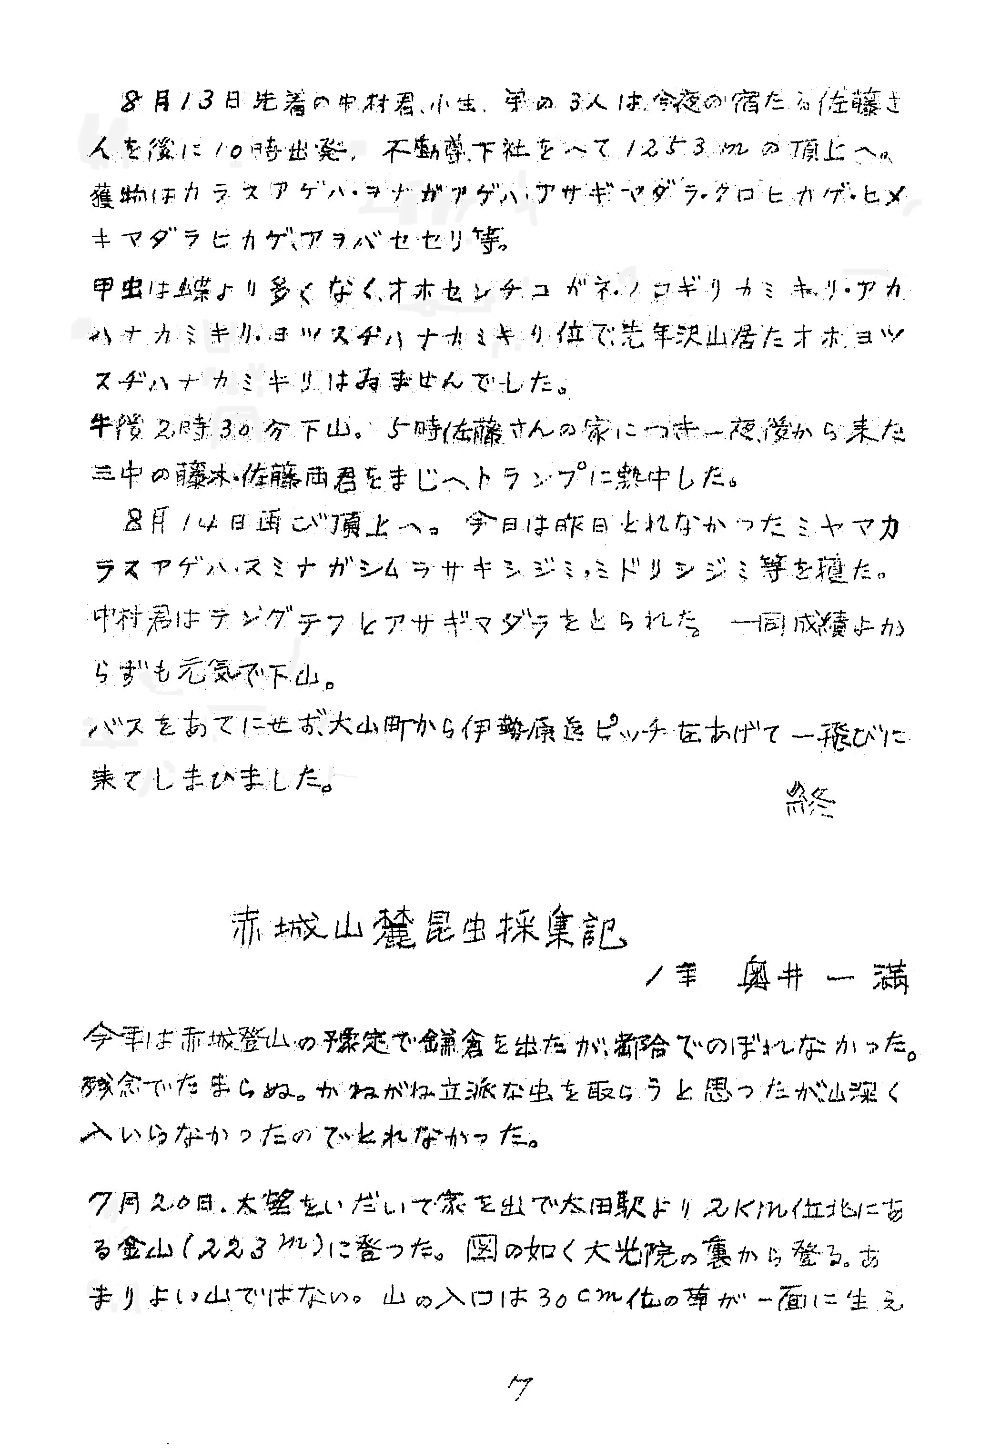 8月13日先着の中村君、小生、弟の3人は今夜の宿たる佐藤さ
んを後に10時出発、不動尊下社をへて1253mの頂上へ。
獲物はカラスアゲハ・ヲナガアゲハ・アサギマダラ・クロヒカゲ・ヒメ
キマダラヒカゲ、アヲバセセリ等。
甲虫は蝶より多くなく、オホセンチコガネ・ノコギリカミキリ・アカ
ハナカミキリ・ヨツスヂハナカミキリ位で、先年沢山居たオホヨツ
スヂハナカミキリはゐませんでした。
午後2時30分下山。5時佐藤さんの家につき一夜、後から来た
三中の藤木・佐藤両君をまじへトランプに熱中した。
8月14日再び頂上へ。今日は昨日とれなかったミヤマカ
ラスアゲハ、スミナガシ、ムラサキシジミ、ミドリシジミ等を獲た。
中村君はテングテフとアサギマダラをとられた。一同成績よか
らずも元気で下山。
バスをあてにせず、大山町から伊勢原迄ピッチをあげて一飛びに
来てしまひました。
終
赤城山麓昆虫採集記
1年 奥井一満
今年は赤城登山の予定で鎌倉を出たが、都合でのぼれなかった。
残念でたまらぬ。かねがね立派な虫を取らうと思ったが山深く
入いらなかったのでとれなかった。
7月20日、大望をいだいて家を出で太田駅より2Km位北にあ
る金山(223m)に登った。図の如く大光院の裏から登る。あ
まりよい山ではない。山の入口は30cm位の草が一面に生え
7